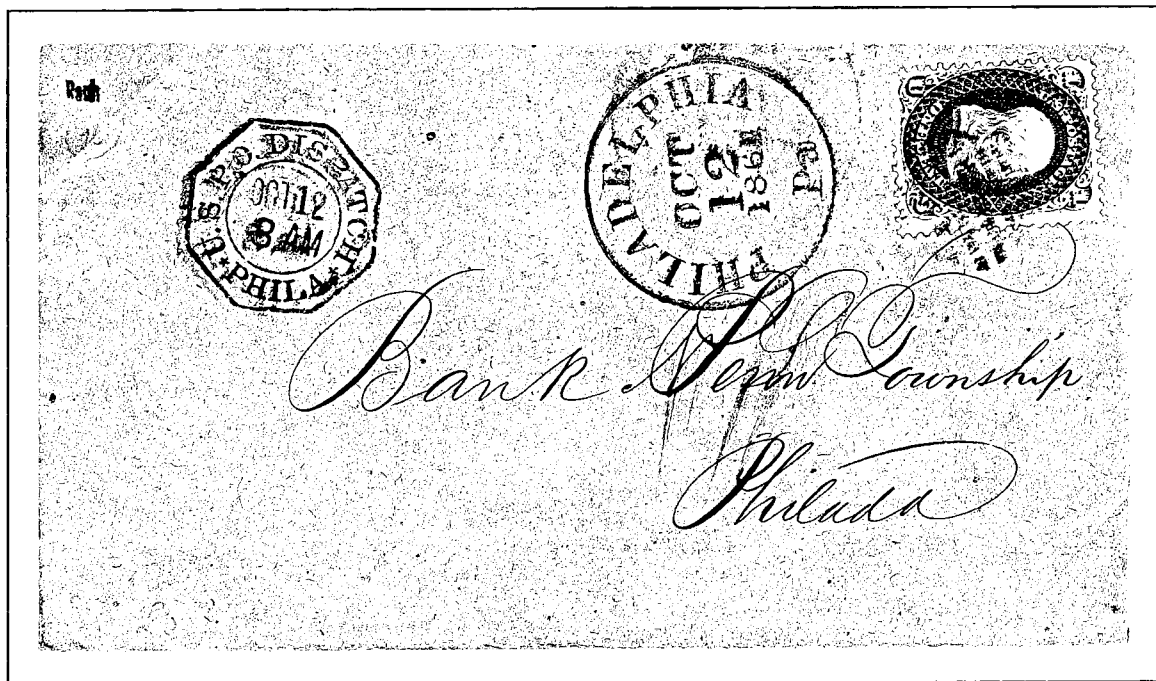 U.S.P.O. DISPATCH
OCT 12
8 AM
★ PHILA ★
PHILADELPHIA Pa
OCT
12
1861
Bank Penn Township
Philada